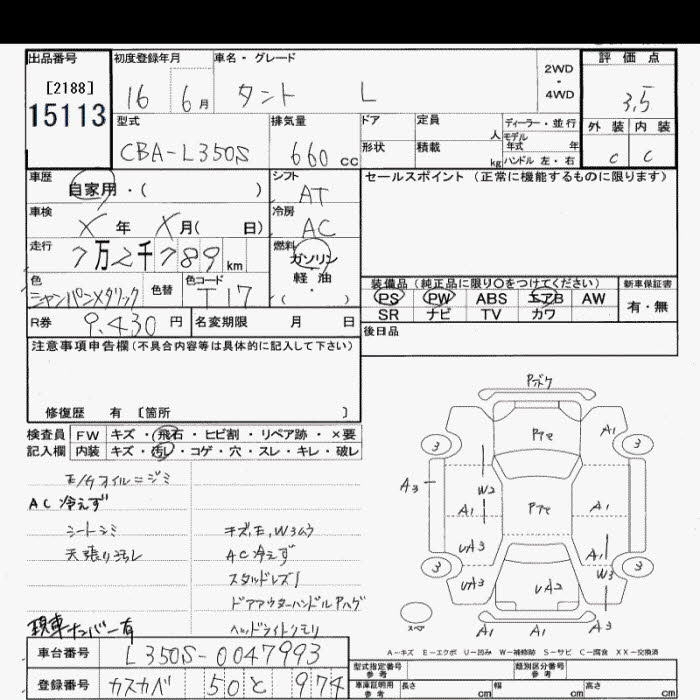 出品番号
[2188]
15113
初度登録年月
16 6 月
車名・グレード
タント L
2WD
・
4WD
評価点
3.5
型式
CBA-L350S
排気量
660 cc
ドア
形状
定員
人
積載
kg
ディーラー・並行
モデル
年式 年
ハンドル 左・右
外装 内装
C C
車歴
自家用・( )
シフト
AT
セールスポイント (正常に機能するものに限ります)
車検
X 年 X 月( 日)
冷房
AC
走行
7万2千789 km
燃料
ガソリン
軽油
・( )
色
シャンパンメタリック
色替
色コード
T17
装備品 (純正品に限り○をつけてください)
PS PW ABS エアB AW
SR ナビ TV カワ
新車保証書
有・無
R券
9,430 円
名変期限 月 日
後日品
注意事項申告欄(不具合内容等は具体的に記入して下さい)
修復歴 有 〔箇所 〕
検査員
記入欄
FW キズ・飛石・ヒビ割・リペア跡・×要
内装 キズ・汚レ・コゲ・穴・スレ・キレ・破レ
AC 冷えず
シートシミ
天張り汚レ
現車ナンバー有
キズ,E,W3ムラ
AC冷えず
スタルドレズ1
ドアアウターハンドルPハゲ
ヘッドライトクモリ
Pボケ
Pアセ
A1
3
3
A3
W2
A1
Pアセ
A1
UA3
A1
3
3
UA3
UA2
W3
スペア
A1
A1
A3
A-キズ E-エクボ U-凹み W-補修跡 S-サビ C-腐食 XX-交換済
車台番号
L350S-0047993
登録番号
カスカベ 50 と 974
型式指定番号
参考
類別区分番号
参考
車庫証明用
参考
長さ cm
幅 cm
高さ cm